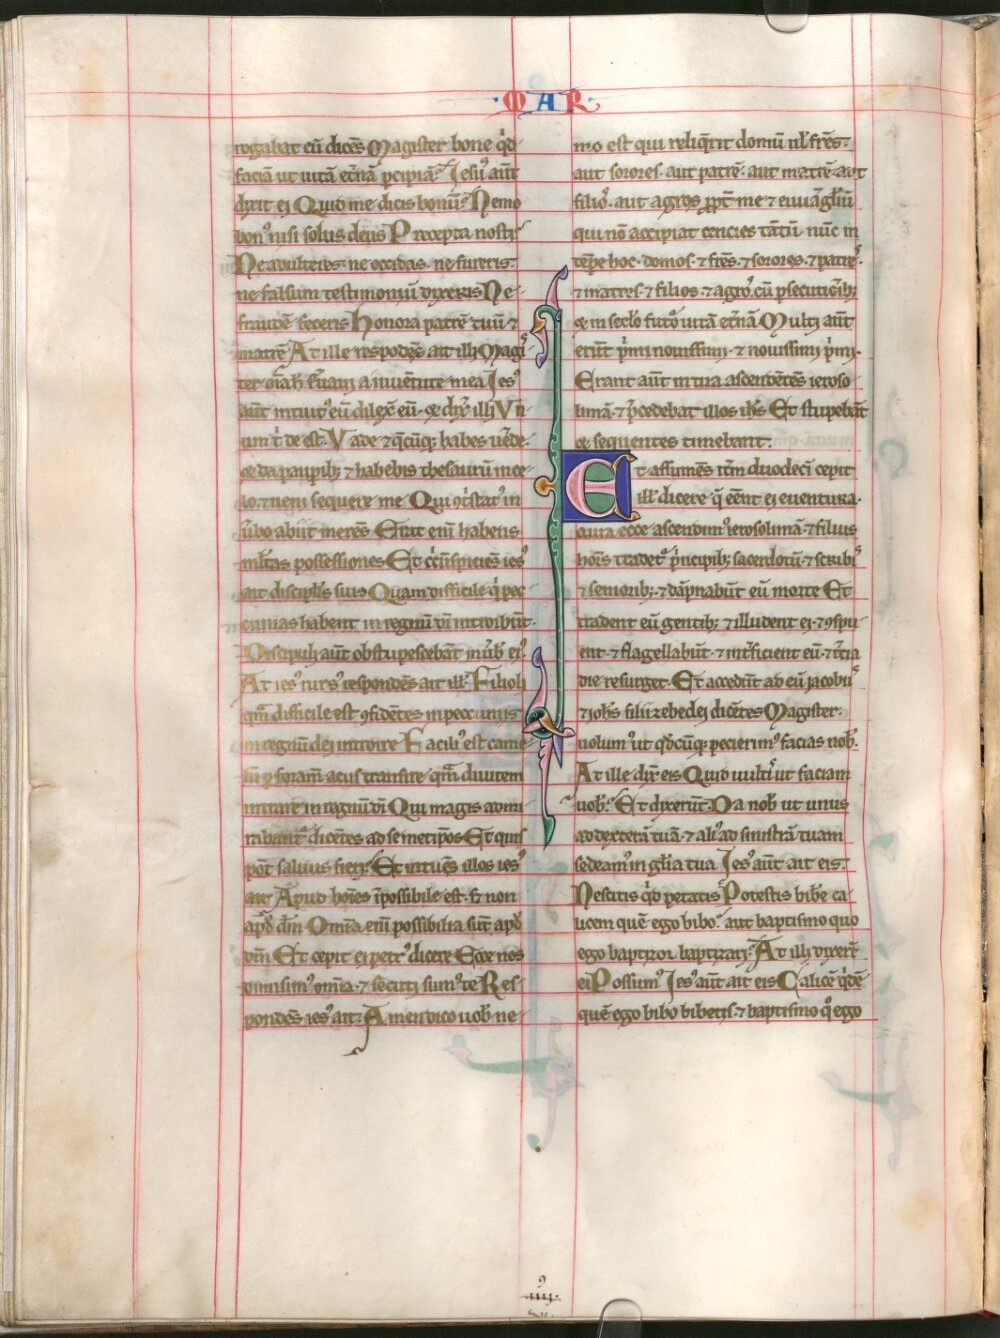 MAR
rogabat eū dicēs Magister bone q̇d
faciā ut uitā etnā pcipiā? Iesus aut̄
dixit ei Quid me dicis bonū? Nemo
bonꝰ nisi solus deus Precepta nosti
Ne adulteres. ne occidas. ne fureris.
ne falsum testimoniū dixeris Ne
fraudē feceris Honora patrē tuū ⁊
matrē At ille respōdēs ait illi Magis
ter om̄ia h̄ seruaui a iuuentute mea Iesꝰ
aut̄ intuitꝰ eū dilex̄ eū. ⁊ dix̄ illi Vn
um t̄ de est. Vade ⁊ q̄cūq; habes uēde.
⁊ da paupib; ⁊ habebis thesaurū in ce
lo. ⁊ ueni sequere me Qui ꝯtstatꝰ in
ūbo abiit merēs Erat eni habens
mltas possessiones Et circūspiciēs iesꝰ
ait disciplis suis Quam difficile q̇ pec
cunias habent in regnū di introibūt.
Discipuli aut̄ obstupescebāt in ūb eiꝰ
At iesꝰ rursꝰ respondēs ait ill Filioli
qm̄ difficile est ꝯfidētes in peccuniis
in regnū dei introire Faciliꝰ est came
lū p foram̄ acus transire qm̄ diuitem
intrare in regnū di Qui magis admi
rabantꝰ dicētes ad semetipos Et quis
pōt saluus fieri? Et intuēs illos iesꝰ
ait Apud hoīes īpossibile est. s; non
apd dm̄ Omīa eni possibilia sūt apd
dm̄ Et cepit ei petrꝰ dicere Ecce nos
dimisimꝰ omīa. ⁊ secuti sumꝰ te Res
pondēs iesꝰ ait. Amen dico uob ne
mo est qui reliq̄rit domū ul frēs.
aut sorores. aut patrē. aut matrē. aut
filioꝰ. aut agros ꝓpt me ⁊ euuāgliū
qui nō accipiat centies tātū nūc in
tēpe hoc. domos. ⁊ frēs. ⁊ sorores. ⁊ patreꝰ.
⁊ matres. ⁊ filios. ⁊ agroꝰ. cū psecutiōib;
⁊ in seclo futoꝰ uitā etnā Multi aut̄
erūt p̄mi nouissimi. ⁊ nouissimi p̄mi.
Erant aut̄ in uia ascendētes ieroso
limā. ⁊ p̄cedebat illos ihs Et stupebāt
⁊ sequentes timebant.
Et assumēs itm̄ duodeci cepit
ill dicere q̄ eent ei euentura.
quia ecce ascendimꝰ ierosolimā. ⁊ filius
hoīs tradetꝰ p̄ncipib; sacerdotū. ⁊ scribis
⁊ seniorib;. ⁊ dāpnabūt eū morte Et
tradent eū gentib; ⁊ illudent ei. ⁊ ꝯspu
ent. ⁊ flagellabūt. ⁊ int̄ficient eū. ⁊ t̄cia
die resurget. Et accedūt ad eū iacobus
⁊ iohs filii zebedei dicētes Magister.
uolumꝰ ut qdcūq; pecierimꝰ facias nob.
At ille dix̄ eis Quid uultis ut faciam
uob? Et dixerūt Da nob ut unus
ad dexterā tuā. ⁊ aliꝰ ad sinistrā tuam
sedeamꝰ in glīa tua Iesꝰ aut̄ ait eis.
Nescitis qd petatis Potestis bibe ca
licem quē ego bibo. aut baptismo quo
ego baptizor baptizari? At illi dixert̄
ei Possumꝰ Iesꝰ aut̄ ait eis Calicē q̇dē
quē ego bibo bibetis. ⁊ baptismo qͦ ego